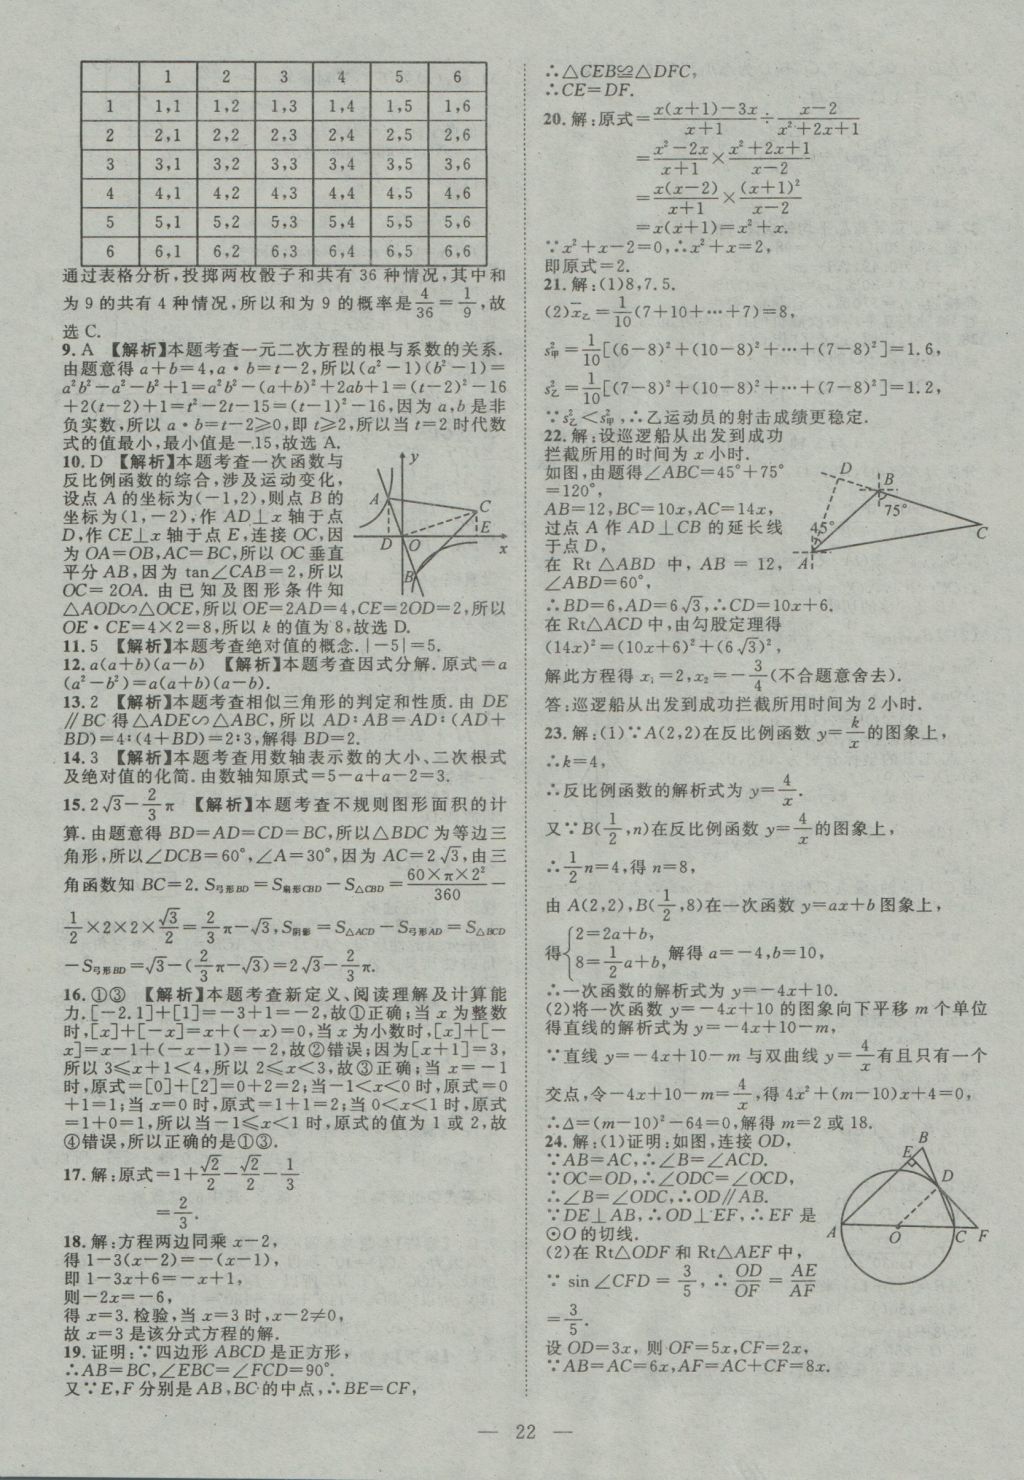 1 2 3 4 5 6
1 1,1 1,2 1,3 1,4 1,5 1,6
2 2,1 2,2 2,3 2,4 2,5 2,6
3 3,1 3,2 3,3 3,4 3,5 3,6
4 4,1 4,2 4,3 4,4 4,5 4,6
5 5,1 5,2 5,3 5,4 5,5 5,6
6 6,1 6,2 6,3 6,4 6,5 6,6
通过表格分析,投掷两枚骰子和共有 36 种情况,其中和
为 9 的共有 4 种情况,所以和为 9 的概率是4/36=1/9,故
选 C.
9. A 【解析】本题考查一元二次方程的根与系数的关系.
由题意得 a+b=4,a·b=t-2,所以(a²-1)(b²-1)=
a²b²-a²-b²+1=a²b²-(a+b)²+2ab+1=(t-2)²-16
+2(t-2)+1=t²-2t-15=(t-1)²-16,因为 a,b 是非
负实数,所以 a·b=t-2⩾0,即 t⩾2,所以当 t=2 时代数
式的值最小,最小值是-15,故选 A.
10. D 【解析】本题考查一次函数与
反比例函数的综合,涉及运动变化,
设点 A 的坐标为(-1,2),则点 B 的
坐标为(1,-2),作 AD⊥x 轴于点
D,作 CE⊥x 轴于点 E,连接 OC,因
为 OA=OB,AC=BC,所以 OC 垂直
平分 AB,因为 tan∠CAB=2,所以
OC=2OA. 由已知及图形条件知
△AOD∽△OCE,所以 OE=2AD=4,CE=2OD=2,所以
OE·CE=4×2=8,所以 k 的值为 8,故选 D.
y
A
C
D
O
E
x
B
11. 5 【解析】本题考查绝对值的概念.|-5|=5.
12. a(a+b)(a-b) 【解析】本题考查因式分解. 原式=a
(a²-b²)=a(a+b)(a-b).
13. 2 【解析】本题考查相似三角形的判定和性质. 由 DE
∥BC 得△ADE∽△ABC,所以 AD∶AB=AD∶(AD+
BD)=4∶(4+BD)=2∶3,解得 BD=2.
14. 3 【解析】本题考查用数轴表示数的大小、二次根式
及绝对值的化简. 由数轴知原式=5-a+a-2=3.
15. 2√3-2/3π 【解析】本题考查不规则图形面积的计
算. 由题意得 BD=AD=CD=BC,所以△BDC 为等边三
角形,所以∠DCB=60°,∠A=30°,因为 AC=2√3,由三
角函数知 BC=2. S弓形BD=S扇形CBD-S△CBD=60×π×2²/360-
1/2×2×2×√3/2=2/3π-√3,S阴影=S△ACD-S弓形AD=S△BCD
-S弓形BD=√3-(2/3π-√3)=2√3-2/3π.
16. ①③ 【解析】本题考查新定义、阅读理解及计算能
力.[-2.1]+[1]=-3+1=-2,故①正确;当 x 为整数
时,[x]+[-x]=x+(-x)=0,当 x 为小数时,[x]+[-
x]=x-1+(-x-1)=-2,故②错误;因为[x+1]=3,
所以 3⩽x+1<4,所以 2⩽x<3,故③正确;当 x=-1
时,原式=[0]+[2]=0+2=2;当-1<x<0 时,原式=0
+1=1;当 x=0 时,原式=1+1=2;当 0<x<1 时,原式
=1+0=1,所以当-1⩽x<1 时,原式的值为 1 或 2,故
④错误,所以正确的是①③.
17. 解:原式=1+√2/2-√2/2-1/3
=2/3.
18. 解:方程两边同乘 x-2,
得 1-3(x-2)=-(x-1),
即 1-3x+6=-x+1,
则-2x=-6,
得 x=3. 检验,当 x=3 时,x-2≠0,
故 x=3 是该分式方程的解.
19. 证明:∵四边形 ABCD 是正方形,
∴AB=BC,∠EBC=∠FCD=90°.
又∵E,F 分别是 AB,BC 的中点,∴BE=CF,
∴△CEB≌△DFC,
∴CE=DF.
20. 解:原式=x(x+1)-3x/x+1÷x-2/x²+2x+1
=x²-2x/x+1×x²+2x+1/x-2
=x(x-2)/x+1×(x+1)²/x-2
=x(x+1)=x²+x.
∵x²+x-2=0,∴x²+x=2,
即原式=2.
21. 解:(1)8,7.5.
(2)x̄乙=1/10(7+10+⋯+7)=8,
s²甲=1/10[(6-8)²+(10-8)²+⋯+(7-8)²]=1.6,
s²乙=1/10[(7-8)²+(10-8)²+⋯+(7-8)²]=1.2,
∵s²乙<s²甲,∴乙运动员的射击成绩更稳定.
22. 解:设巡逻船从出发到成功
拦截所用的时间为 x 小时.
如图,由题得∠ABC=45°+75°
=120°,
AB=12,BC=10x,AC=14x,
过点 A 作 AD⊥CB 的延长线
于点 D,
在 Rt△ABD 中,AB=12,
∠ABD=60°,
∴BD=6,AD=6√3,∴CD=10x+6.
D
B
75°
45°
C
A
在 Rt△ACD 中,由勾股定理得
(14x)²=(10x+6)²+(6√3)²,
解此方程得 x₁=2,x₂=-3/4(不合题意舍去).
答:巡逻船从出发到成功拦截所用时间为 2 小时.
23. 解:(1)∵A(2,2)在反比例函数 y=k/x的图象上,
∴k=4,
∴反比例函数的解析式为 y=4/x.
又∵B(1/2,n)在反比例函数 y=4/x的图象上,
∴1/2n=4,得 n=8,
由 A(2,2),B(1/2,8)在一次函数 y=ax+b 图象上,
得{2=2a+b, 8=1/2a+b,解得 a=-4,b=10,
∴一次函数的解析式为 y=-4x+10.
(2)将一次函数 y=-4x+10 的图象向下平移 m 个单位
得直线的解析式为 y=-4x+10-m,
∵直线 y=-4x+10-m 与双曲线 y=4/x有且只有一个
交点,令-4x+10-m=4/x,得 4x²+(m-10)x+4=0,
∴Δ=(m-10)²-64=0,解得 m=2 或 18.
24. 解:(1)证明:如图,连接 OD,
∵AB=AC,∴∠B=∠ACD.
∵OC=OD,∴∠ODC=∠OCD,
∴∠B=∠ODC,∴OD∥AB.
∵DE⊥AB,∴OD⊥EF,∴EF 是
⊙O 的切线.
(2)在 Rt△ODF 和 Rt△AEF 中,
∵sin∠CFD=3/5,∴OD/OF=AE/AF
=3/5.
B
E
D
A
O
C
F
设 OD=3x,则 OF=5x,CF=2x,
∵AB=AC=6x,AF=AC+CF=8x.
— 22 —